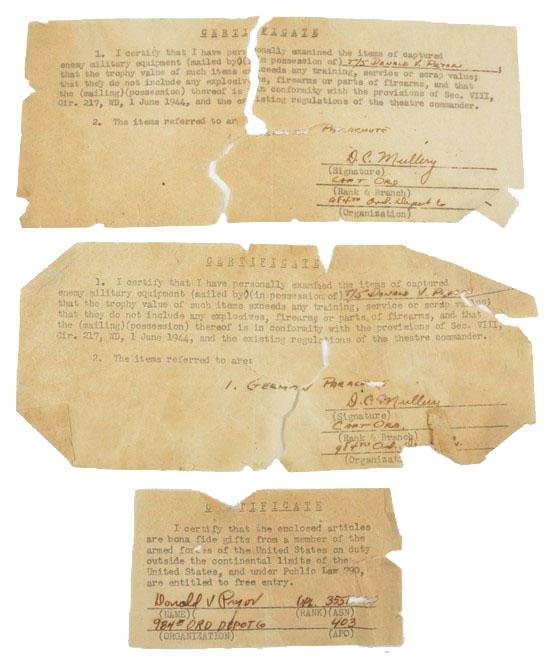 CERTIFICATE
1. I certify that I have personally examined the items of captured
enemy military equipment (mailed by)(in possession of) T/5 Donald V. Pryor;
that the trophy value of such items exceeds any training, service or scrap value;
that they do not include any explosives, firearms or parts of firearms, and that
the (mailing)(possession) thereof is in conformity with the provisions of Sec. VIII,
Cir. 217, WD, 1 June 1944, and the existing regulations of the theatre commander.
2. The items referred to ar
PARACHUTE
D.C. Mullery
(Signature)
CAPT ORD
(Rank & Branch)
984th Ord. Depot Co
(Organization)
CERTIFICATE
1. I certify that I have personally examined the items of captured
enemy military equipment (mailed by)(in possession of) T/5 Donald V. Pryor
that the trophy value of such items exceeds any training, service or scrap value;
that they do not include any explosives, firearms or parts of firearms, and that
the (mailing)(possession) thereof is in conformity with the provisions of Sec. VIII,
Cir. 217, WD, 1 June 1944, and the existing regulations of the theatre commander.
2. The items referred to are:
1. GERMAN PARAC
D.C. Mullery
(Signature)
CAPT ORD.
(Rank & Branch)
984th Ord.
(Organizat
CERTIFICATE
I certify that the enclosed articles
are bona fide gifts from a member of the
armed forces of the United States on duty
outside the continental limits of the
United States, and under Public Law 790,
are entitled to free entry.
Donald V Pryor CPL. 3551
(NAME)( (RANK)(ASN)
984th ORD DEPOT Co 403
(ORGANIZATION) (APO)